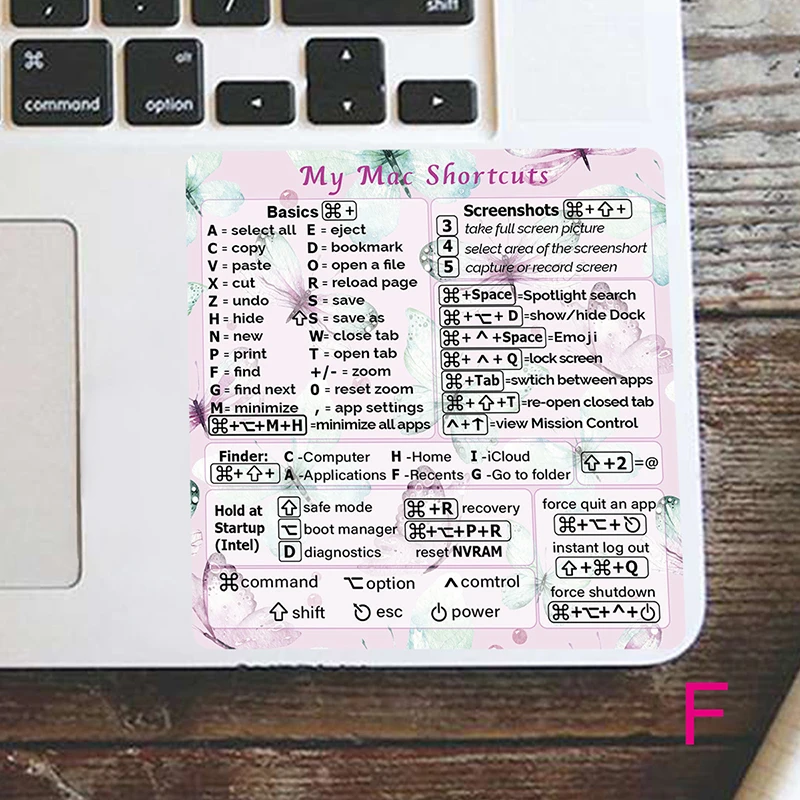 ,
.
/
shift
⌘ alt
command option
◄ ▲ ▼ ►
My Mac Shortcuts
Basics ⌘+
A = select all E = eject
C = copy D = bookmark
V = paste O = open a file
X = cut R = reload page
Z = undo S = save
H = hide ⇧S = save as
N = new W= close tab
P = print T = open tab
F = find +/- = zoom
G = find next 0 = reset zoom
M= minimize , = app settings
⌘+⌥+M+H =minimize all apps
Screenshots ⌘+⇧+
3 take full screen picture
4 select area of the screenshort
5 capture or record screen
⌘+Space=Spotlight search
⌘+⌥+ D =show/hide Dock
⌘+ ^ +Space=Emoji
⌘+ ^ + Q =lock screen
⌘+Tab =swtich between apps
⌘+⇧+T =re-open closed tab
^+↑ =view Mission Control
Finder: C -Computer H -Home I -iCloud
⌘+⇧+ A -Applications F -Recents G -Go to folder
⇧+2 =@
Hold at
Startup
(Intel)
⇧ safe mode ⌘+R recovery
⌥ boot manager ⌘+⌥+P+R
D diagnostics reset NVRAM
force quit an app
⌘+⌥+⎋
instant log out
⇧+⌘+Q
force shutdown
⌘+⌥+^+⏻
⌘command ⌥option ^comtrol
⇧shift ⎋ esc ⏻ power
F